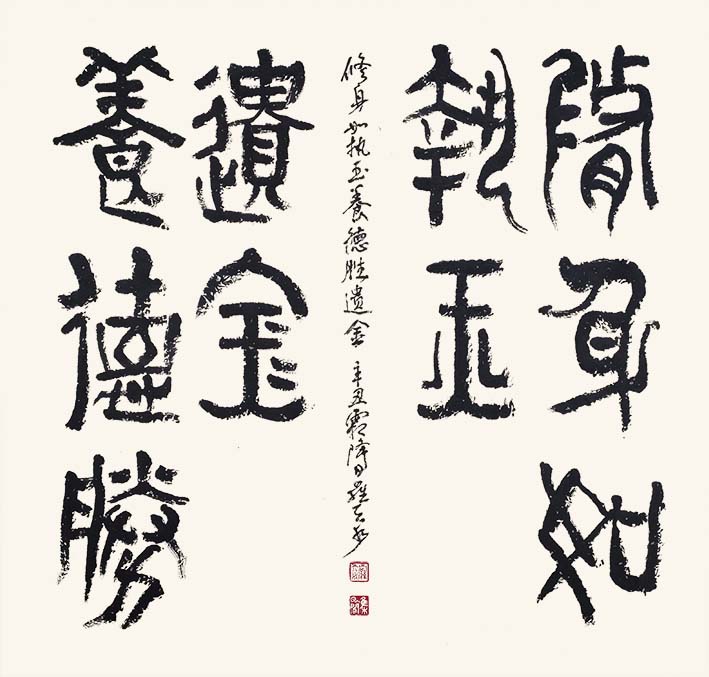 脩身如
執玉
養德勝
遺金
修身如执玉養德胜遗金 辛丑霜降日羅